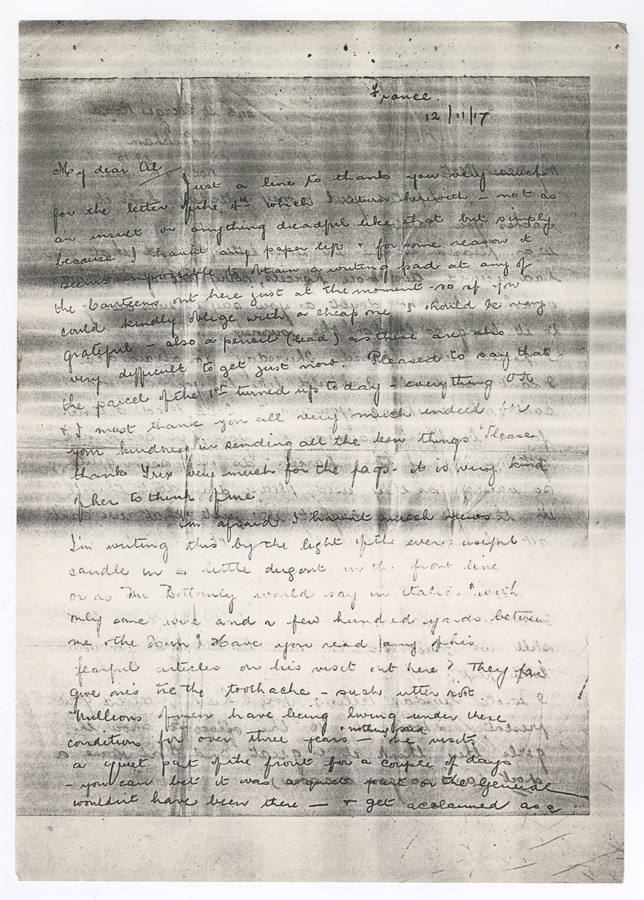 France.
12/11/17
My dear Al
Just a line to thank you very much
for the letter of the 4th which I return herewith - not as
an insult or anything dreadful like that but simply
because I haven't any paper left & for some reason it
seems impossible to obtain a writing pad at any of
the Canteens out here just at the moment - so if you
could kindly oblige with a cheap one I should be very
grateful - also a pencil (lead) as these are also
very difficult to get just now. Pleased to say that
the parcel of the 1st turned up today - everything OK
& I must thank you all very much indeed for
your kindness in sending all the bon things. Please
thank Trix very much for the fags - it is very kind
of her to think of me.
I'm afraid I haven't much news.
I'm writing this by the light of the ever useful
candle in a little dugout in the front line
or as Mr Bottomley would say in italics "with
only some wire and a few hundred yards between
me & the Hun". Have you read any of his
fearful articles on his visit out here? They fair
give one the toothache - such utter rot.
Millions of men have being living under these
conditions for over three years - nothing said
- he visits
a quiet part of the front for a couple of days
- you can bet it was a quiet part or the General
wouldn't have been there - & get acclaimed as a